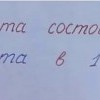 та состо
та в 1